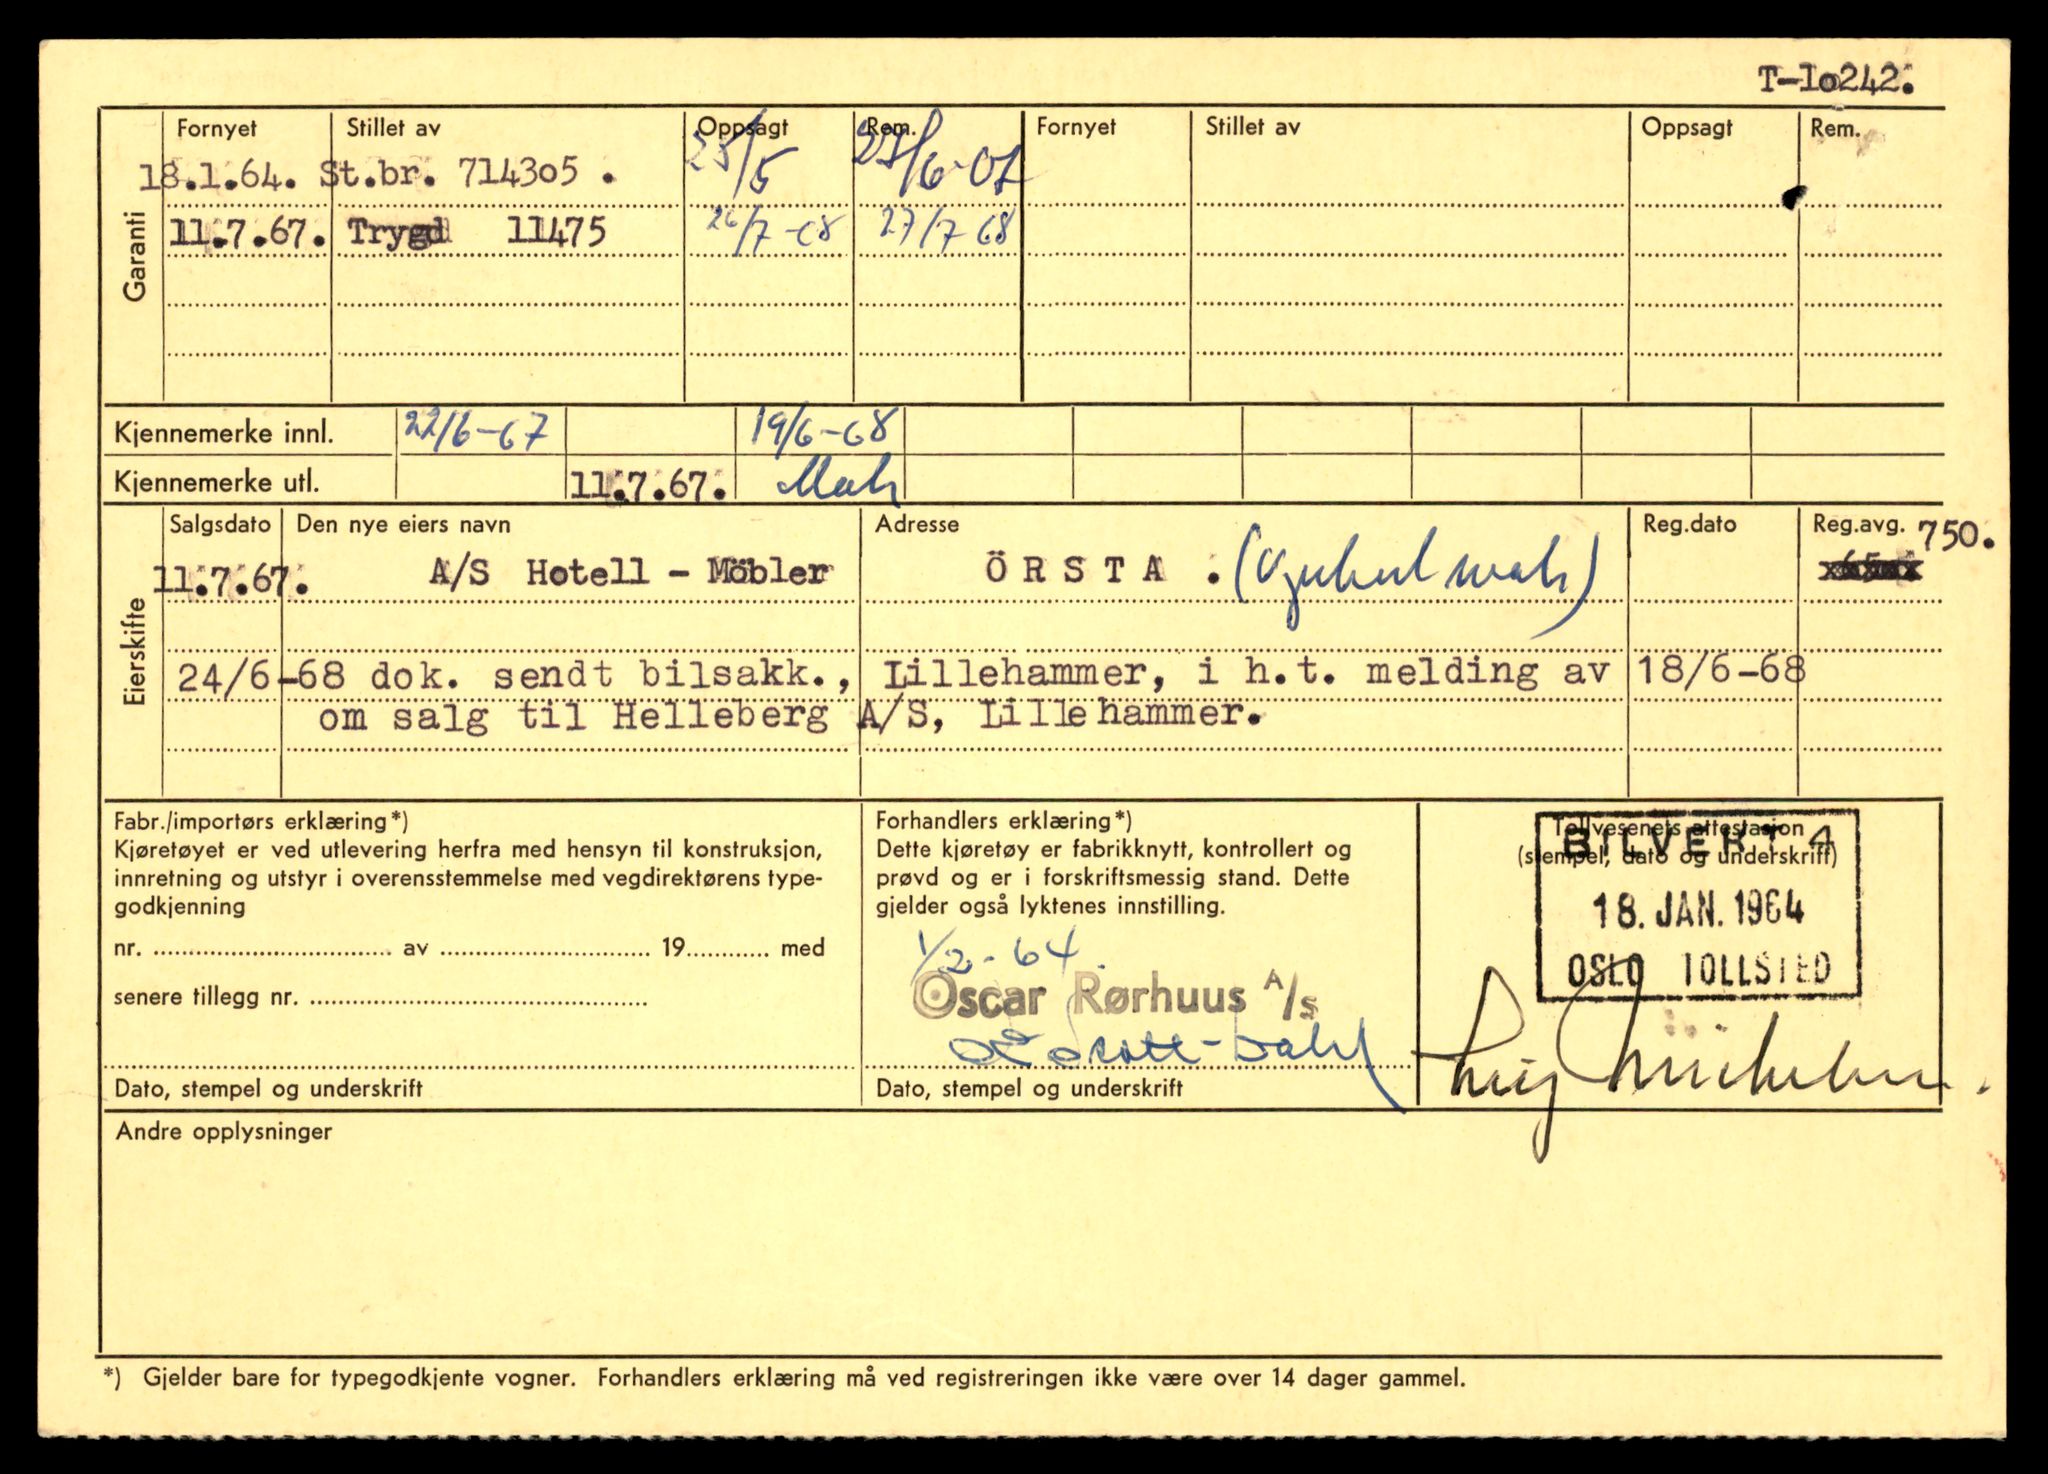 T-1o242.
Garanti
Fornyet Stillet av Oppsagt Rem. Fornyet Stillet av Oppsagt Rem.
18.1.64. St.br. 7143o5 . 25/5
11.7.67. Trygd 11475 26/7-68 27/7 68
Kjennemerke innl. 22/6-67 19/6-68
Kjennemerke utl. 11.7.67.
Eierskifte
Salgsdato Den nye eiers navn Adresse Reg.dato Reg.avg. 750.
11.7.67. A/S Hotell - Möbler Ö R S T A .
24/6-68 dok. sendt bilsakk., Lillehammer, i h.t. melding av 18/6-68
om salg til Helleberg A/S, Lillehammer.
Fabr./importørs erklæring*)
Kjøretøyet er ved utlevering herfra med hensyn til konstruksjon,
innretning og utstyr i overensstemmelse med vegdirektørens type-
godkjenning
nr. .......... av .......... 19.......... med
senere tillegg nr. ..........
Dato, stempel og underskrift
Forhandlers erklæring*)
Dette kjøretøy er fabrikknytt, kontrollert og
prøvd og er i forskriftsmessig stand. Dette
gjelder også lyktenes innstilling.
1/2-64.
Oscar Rørhuus A/S
Dato, stempel og underskrift
Tollvesenets attestasjon
(stempel, dato og underskrift)
BILVEKT 4
18. JAN. 1964
OSLO TOLLSTED
Andre opplysninger
*) Gjelder bare for typegodkjente vogner. Forhandlers erklæring må ved registreringen ikke være over 14 dager gammel.